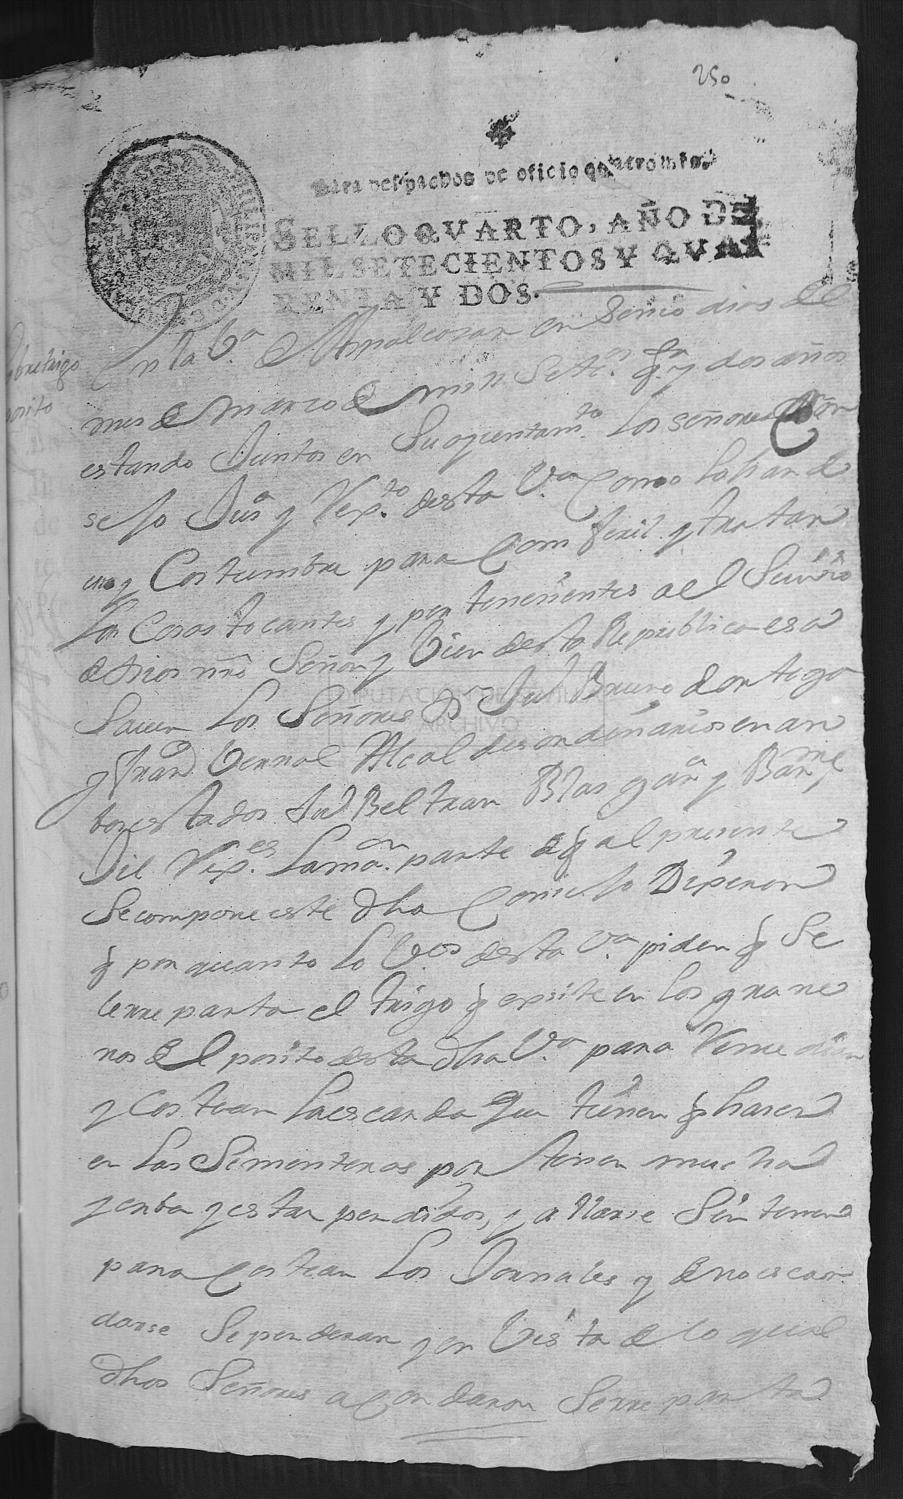 250
Para despachos de oficio quatro mrs.
SELLO QVARTO, AÑO DE
MIL SETECIENTOS Y QVA
RENTA Y DOS.
En la Va de Almalcozar en sinco dias del
mes de Marzo de mill Setos. qta y dos años
estando Juntos en Su ayuntamto. los señores
sejo Jusa y Rexto. desta Va Como lo han de
uso y Costumbre para Comferil y tratar
Las Cosas tocantes y pertenesientes a el Survisio
de Dios nro Señor y Vien desta Republica es a
Saver Los Señores Dn Jul Bruno de ortega
y Frando Vernal Alcaldes ordinarios en an
bos estados Jul Beltran Blas gara y Barme
Jil Rexes. Lamaor. parte de q al presente
Se compone este dho Consejo Dixeron
q por quanto lo Vos desta Va piden q Se
lerreparta el trigo q exsite en los grane
ros del posito desta dha Va para Remedian
y Costear la escarda que tienen q haser
en las Simenteras por tener mucha
yerba y estar perdidos, y allarse Sin tener
para Costear Los Jornales y de no escar
darse Se perderan y en Vista de lo qual
dhos Señores acordaron Serreparta
DIPUTACIÓN DE SEVILLA
ARCHIVO